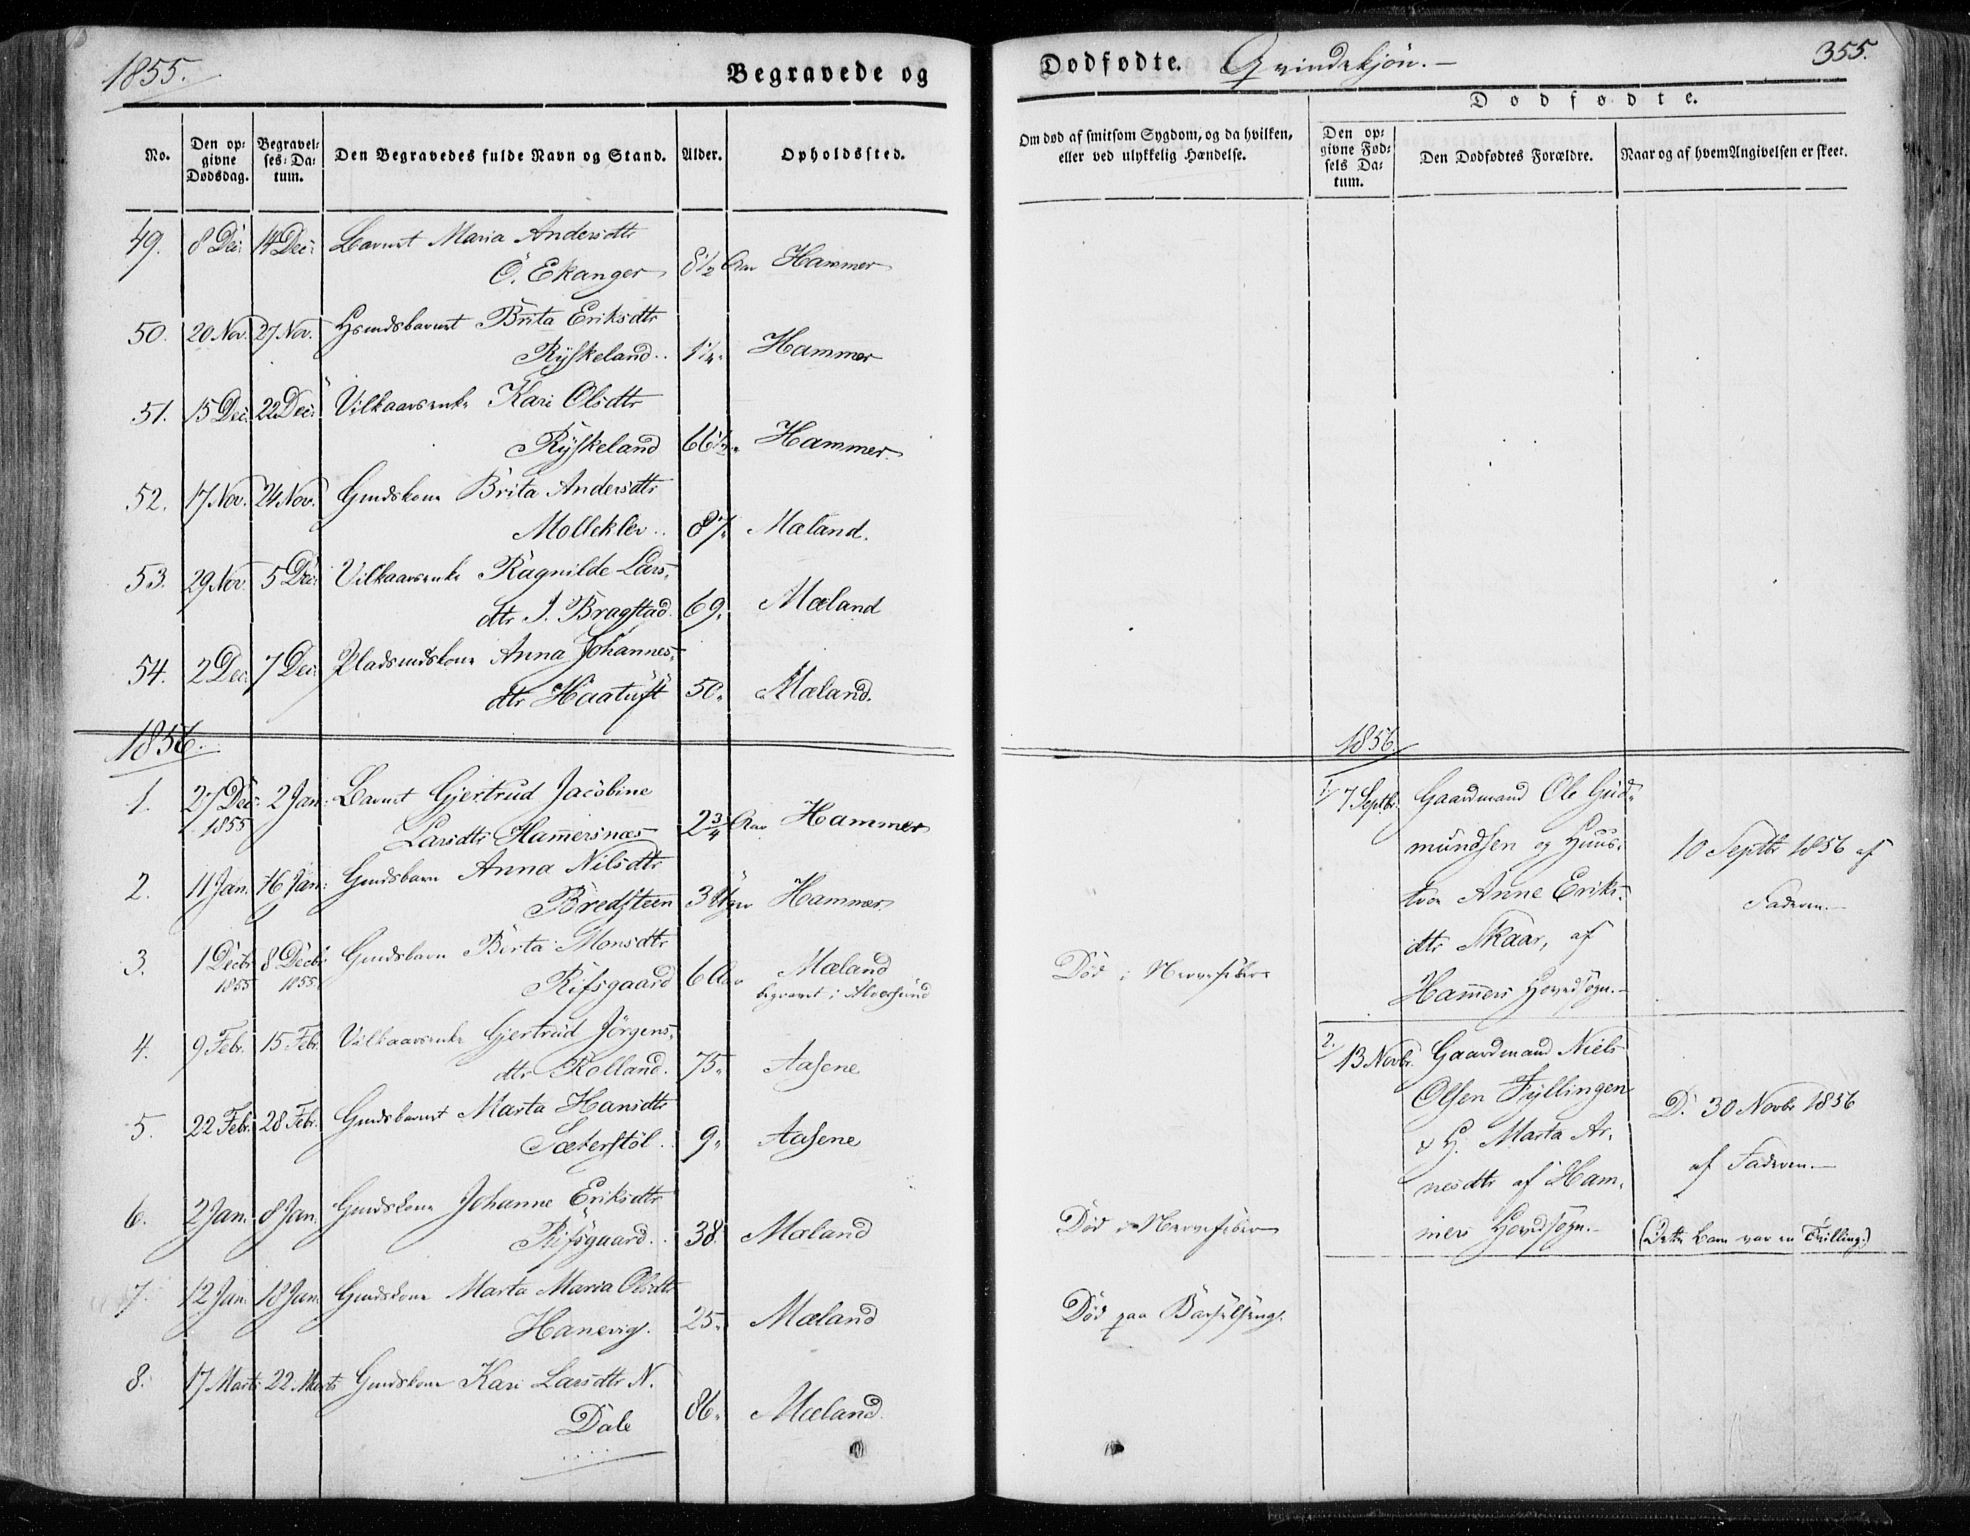 1855.
Begravede og
Dodfødte. Qvindekjön.-
355.
No.
Den op-
givne
Dødsdag.
Begravel-
ses-Da-
tum.
Den Begravedes fulde Navn og Stand.
Alder.
Opholdssted.
Om død af smitsom Sygdom, og da hvilken,
eller ved ulykkelig Hændelse.
Dødfødte.
Den op-
givne Fød-
sels Da-
tum.
Den Dødfødtes Forældre.
Naar og af hvem Angivelsen er skeet.
49. 8 Dec: 14 Dec: Barnet Maria Andersdtr
Ö. Ekanger 8½ Aar Hammer
50. 20 Nov. 27 Nov. Gmdsbarnet Brita Eriksdtr
Ryskeland.. 1¼" Hammer
51. 15 Dec. 22 Dec: Vilkaarsenke Kari Olsdtr
Ryskeland 66½" Hammer.
52. 17 Nov. 24 Nov. Gmdskone Brita Andersdtr
Molleklev.. 87" Mæland.
53. 29 Nov. 5 Dec: Vilkaarsenke Ragnilde Lars-
dtr I. Bragstad. 69" Mæland
54. 2 Dec. 7 Dec: Pladsmdskone Anna Johannes-
dtr Haatuft 50" Mæland.
1856.
1. 27 Dec: 2 Jan: Barnet Gjertrud Jacobine
1855
Larsdtr Hamersnæs 2¾ Aar Hammer
2. 11 Jan. 16 Jan: Gmdsbarn Anna Nilsdtr
Bredsteen 3 Uger Hammer.
3. 1 Decbr 8 Decbr Gmdsbarn Berta Monsdtr
1855 1855
Rifsgaard 6 Aar Mæland
begravet i Alversund
Död i Nervefeber
4. 9 Febr. 15 Febr. Vilkaarsenke Gjertrud Jörgens-
dtr Kolland. 75" Aasene
5. 22 Febr. 28 Febr. Gmdsbarnet Marta Hansdtr
Sæterstöl.. 9" Aasene
6. 2 Jan. 8 Jan. Gmdskone Johanne Eriksdtr
Rifsgaard.. 38. Mæland
Död i Nervefeber
7. 12 Jan. 18 Jan. Gmdskone Marta Maria Olsdtr
Hanevig. 25" Mæland
Död paa Barselseng.
8. 17 Marts 22 Marts Gmdskone Kari Larsdtr N.
Dale 86" Mæland.
1856
1/ 7 Septbr. Gaardmand Ole Gud-
mundsen og Huus-
troe Anne Eriks-
dtr Skaar, af
Hamers Hovedsogn.-
10 Septbr 1856 af
Faderen.-
2/ 13 Novbr. Gaardmand Niels
Olsen Fyllingen
& H. Marta Ar-
nesdtr af Ham-
mers Hovedsogn.-
D. 30 Novbr 1856
af Faderen.-
(Dette Barn var en Trilling.)